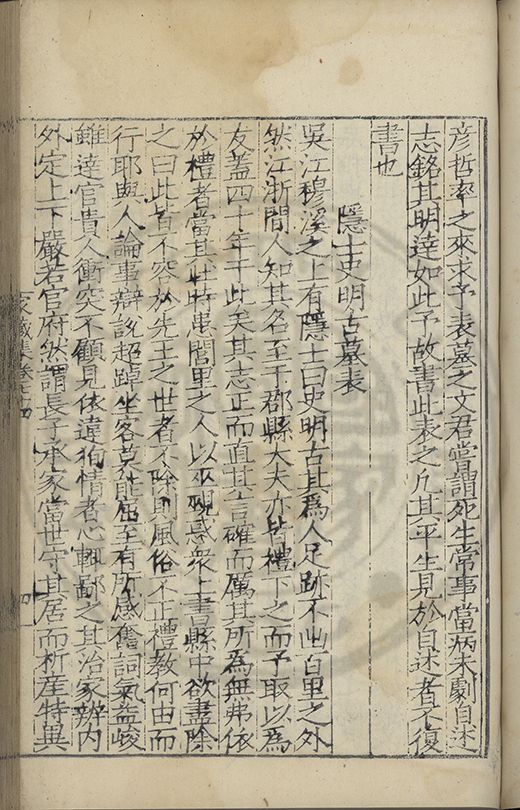 彦哲率之來求予表墓之文君嘗謂死生常事當病未劇自述
志銘其明達如此予故書此表之凡其平生見於自述者不復
書也
隱士史明古墓表
吳江穆溪之上有隱士曰史明古其為人足跡不出百里之外
然江浙間人知其名至于郡縣大夫亦皆禮下之而予取以為
友蓋四十年于此矣其志正而直其言確而厲其所為無弗依
於禮者當其壯時患閭里之人以巫覡惑衆上書縣中欲盡除
之曰此皆不容於先王之世者不除則風俗不正禮教何由而
行耶與人論事辯說超踔坐客莫能屈至有所感舊詞氣益峻
雖達官貴人衝突不顧見依違狥情者心輒鄙之其治家辨內
外定上下嚴若官府然謂長子承家當世守其居而析產特異
家藏集卷七十四